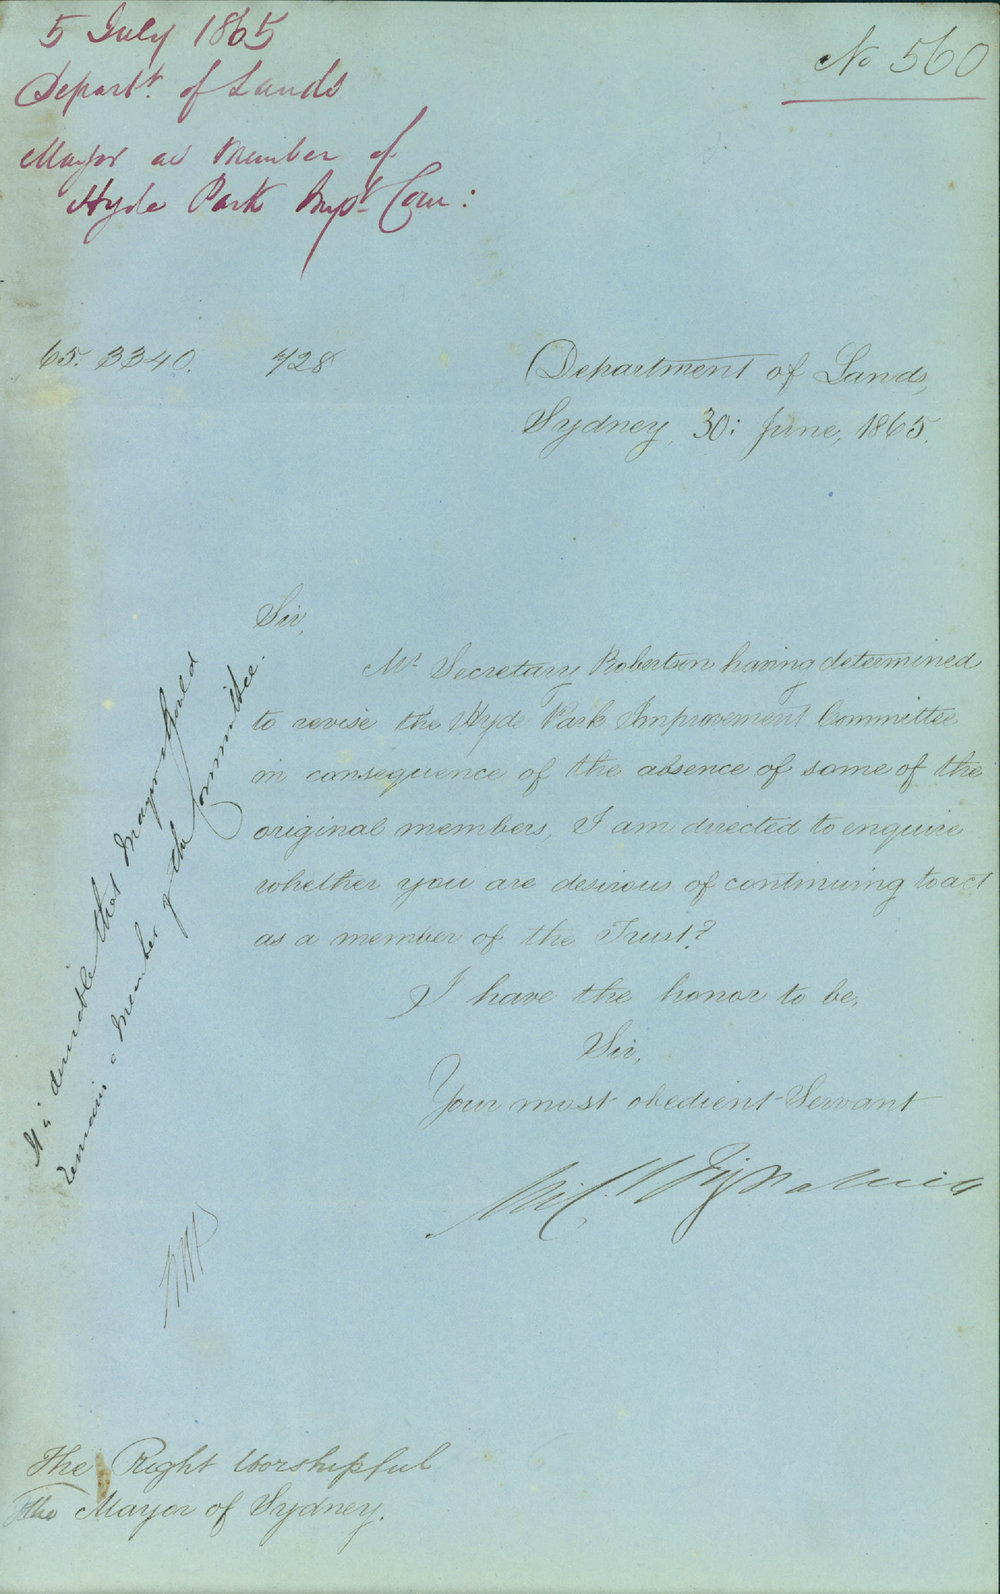 5 July 1865
Depart<sup>t</sup>. of Lands
Mayor as Member of
Hyde Park Impt Com:
No 560
65. 3340. 728
Department of Lands,
Sydney, 30: June, 1865.
Sir,
Mr Secretary Robertson having determined
to revise the Hyde Park Improvement Committee
in consequence of the absence of some of the
original members, I am directed to enquire
whether you are desirous of continuing to act
as a member of the Trust?
I have the honor to be,
Sir,
Your most obedient Servant
Mil. Fitzpatrick
It is desirable that Mayor should
remain a Member of the Committee.
The Right Worshipful
The Mayor of Sydney.